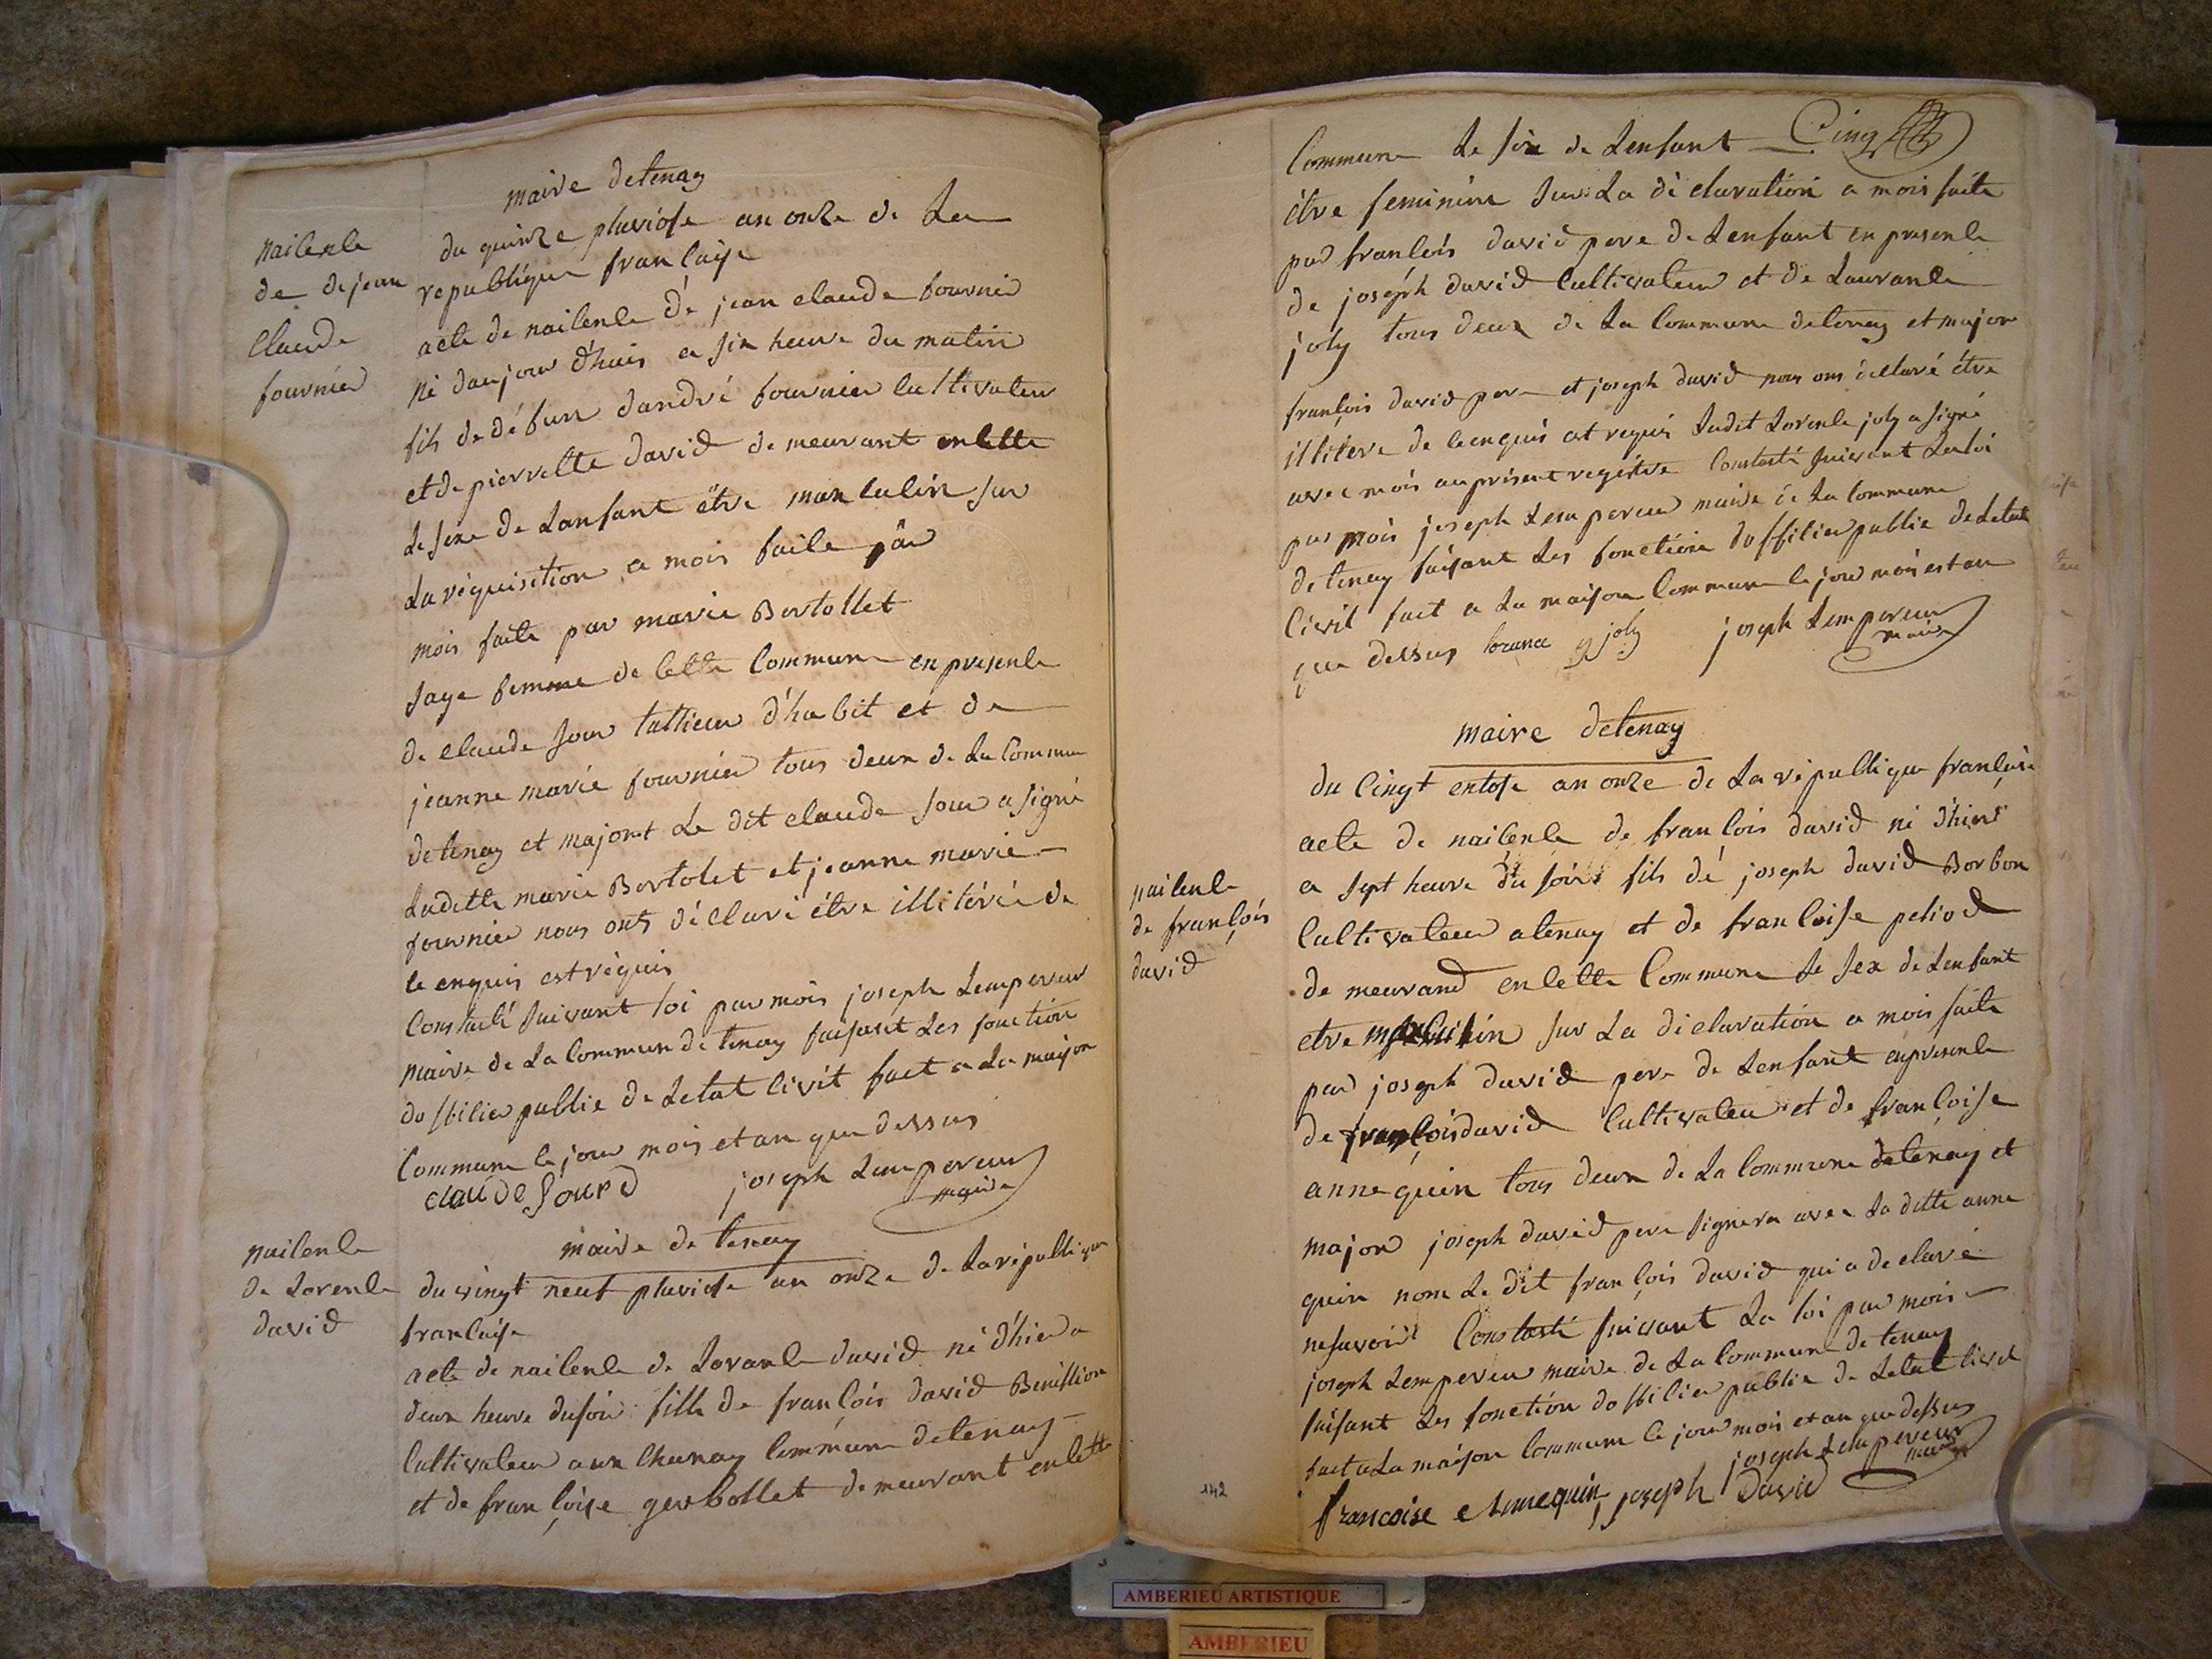 maire detenay
nailenle
de de jean
Claude
fournier
du quinze pluviose an onze de La
republique franlaise
acte de nailenle de jean claude fournier
né daujour d'huis a six heure du matin
fils de défun dandré fournier cultivateur
et de pierrette david de meurant enlette
Le sexe de Lanfant être manlulin sur
La réquisition a mois faite par
mois faite par marie Bertollet
sage femme de lette Commune en presenle
de claude sour tallieur d'habit et de
jeanne marie fournier tous deux de La Commune
detenay et majort Le dit claude sour a signé
Laditte marie Bertolet et jeanne marie
fournier nous onts déClaré étre illitéré de
le enquis est réquis
Constaté suivant loi par mois joseph Lempereur
maire de La Commun de tenay faisant Les fonction
doffilier publie de Letat livit fact a La maison
Commune le jour mois et an que dessus
claude sourd joseph Lempereur
maire
maire de tenay
nailenle
de Lorenle
david
du vingt neuf pluviose an onze de La republique
franlaise
acte de nailenle de Loranle david né d'hier a
deux heure du soir fille de franlois david Benission
Cultivateur aux Chanay Commune detenay
et de franloise gerbollet demeurant enlette
Commune Le sexe de Lenfant Cinq
être feminine sur La déclaration a mois faite
par franlois david pere de Lenfant en presenle
de joseph david Cultivateur et de Lauranle
joly tous deux de La Commune detenay et major
françois david pere et joseph david nous ons déclaré étre
illitere de leenquis est requis Ladit Lorenle joly a signé
avec mois au présent registre Constaté suivant La loi
par mois joseph Lempereur maire de La Commune
detenay faisant Les fonction doffitier publie de Letat
Civil fact a La maison Commune le jour mois est an
que dessus lorance joly joseph Lempereur
maire
maire detenay
du Cingt entose an onze de La république franlaise
nailenle
de franlois
david
acte de nailenle de franlois david né d'hier
a sept heure du soir fils dé joseph david Borbon
Cultivateur atenay et de franloise peliod
de meurand enlette Commune Le sex de Lenfant
etre masculin sur La diclaration a mois faite
par joseph david pere de Lenfant enpresenle
de françois david Cultivateur et de françoise
annequin tous deux de La Commune detenay et
major joseph david pere signera avec La ditte anne
quin nom Le dit franlois david qui a declaré
ne savoir Constasté suivant La loi par mois
joseph Lempereur maire de La Commune de tenay
faisant Les fonction doffilier publie de Letat livil
fact a La maison Commune le jour mois et an que dessus
joseph Lempereur
maire
francoise Annequin joseph David
142
AMBERIEU ARTISTIQUE
AMBERIEU